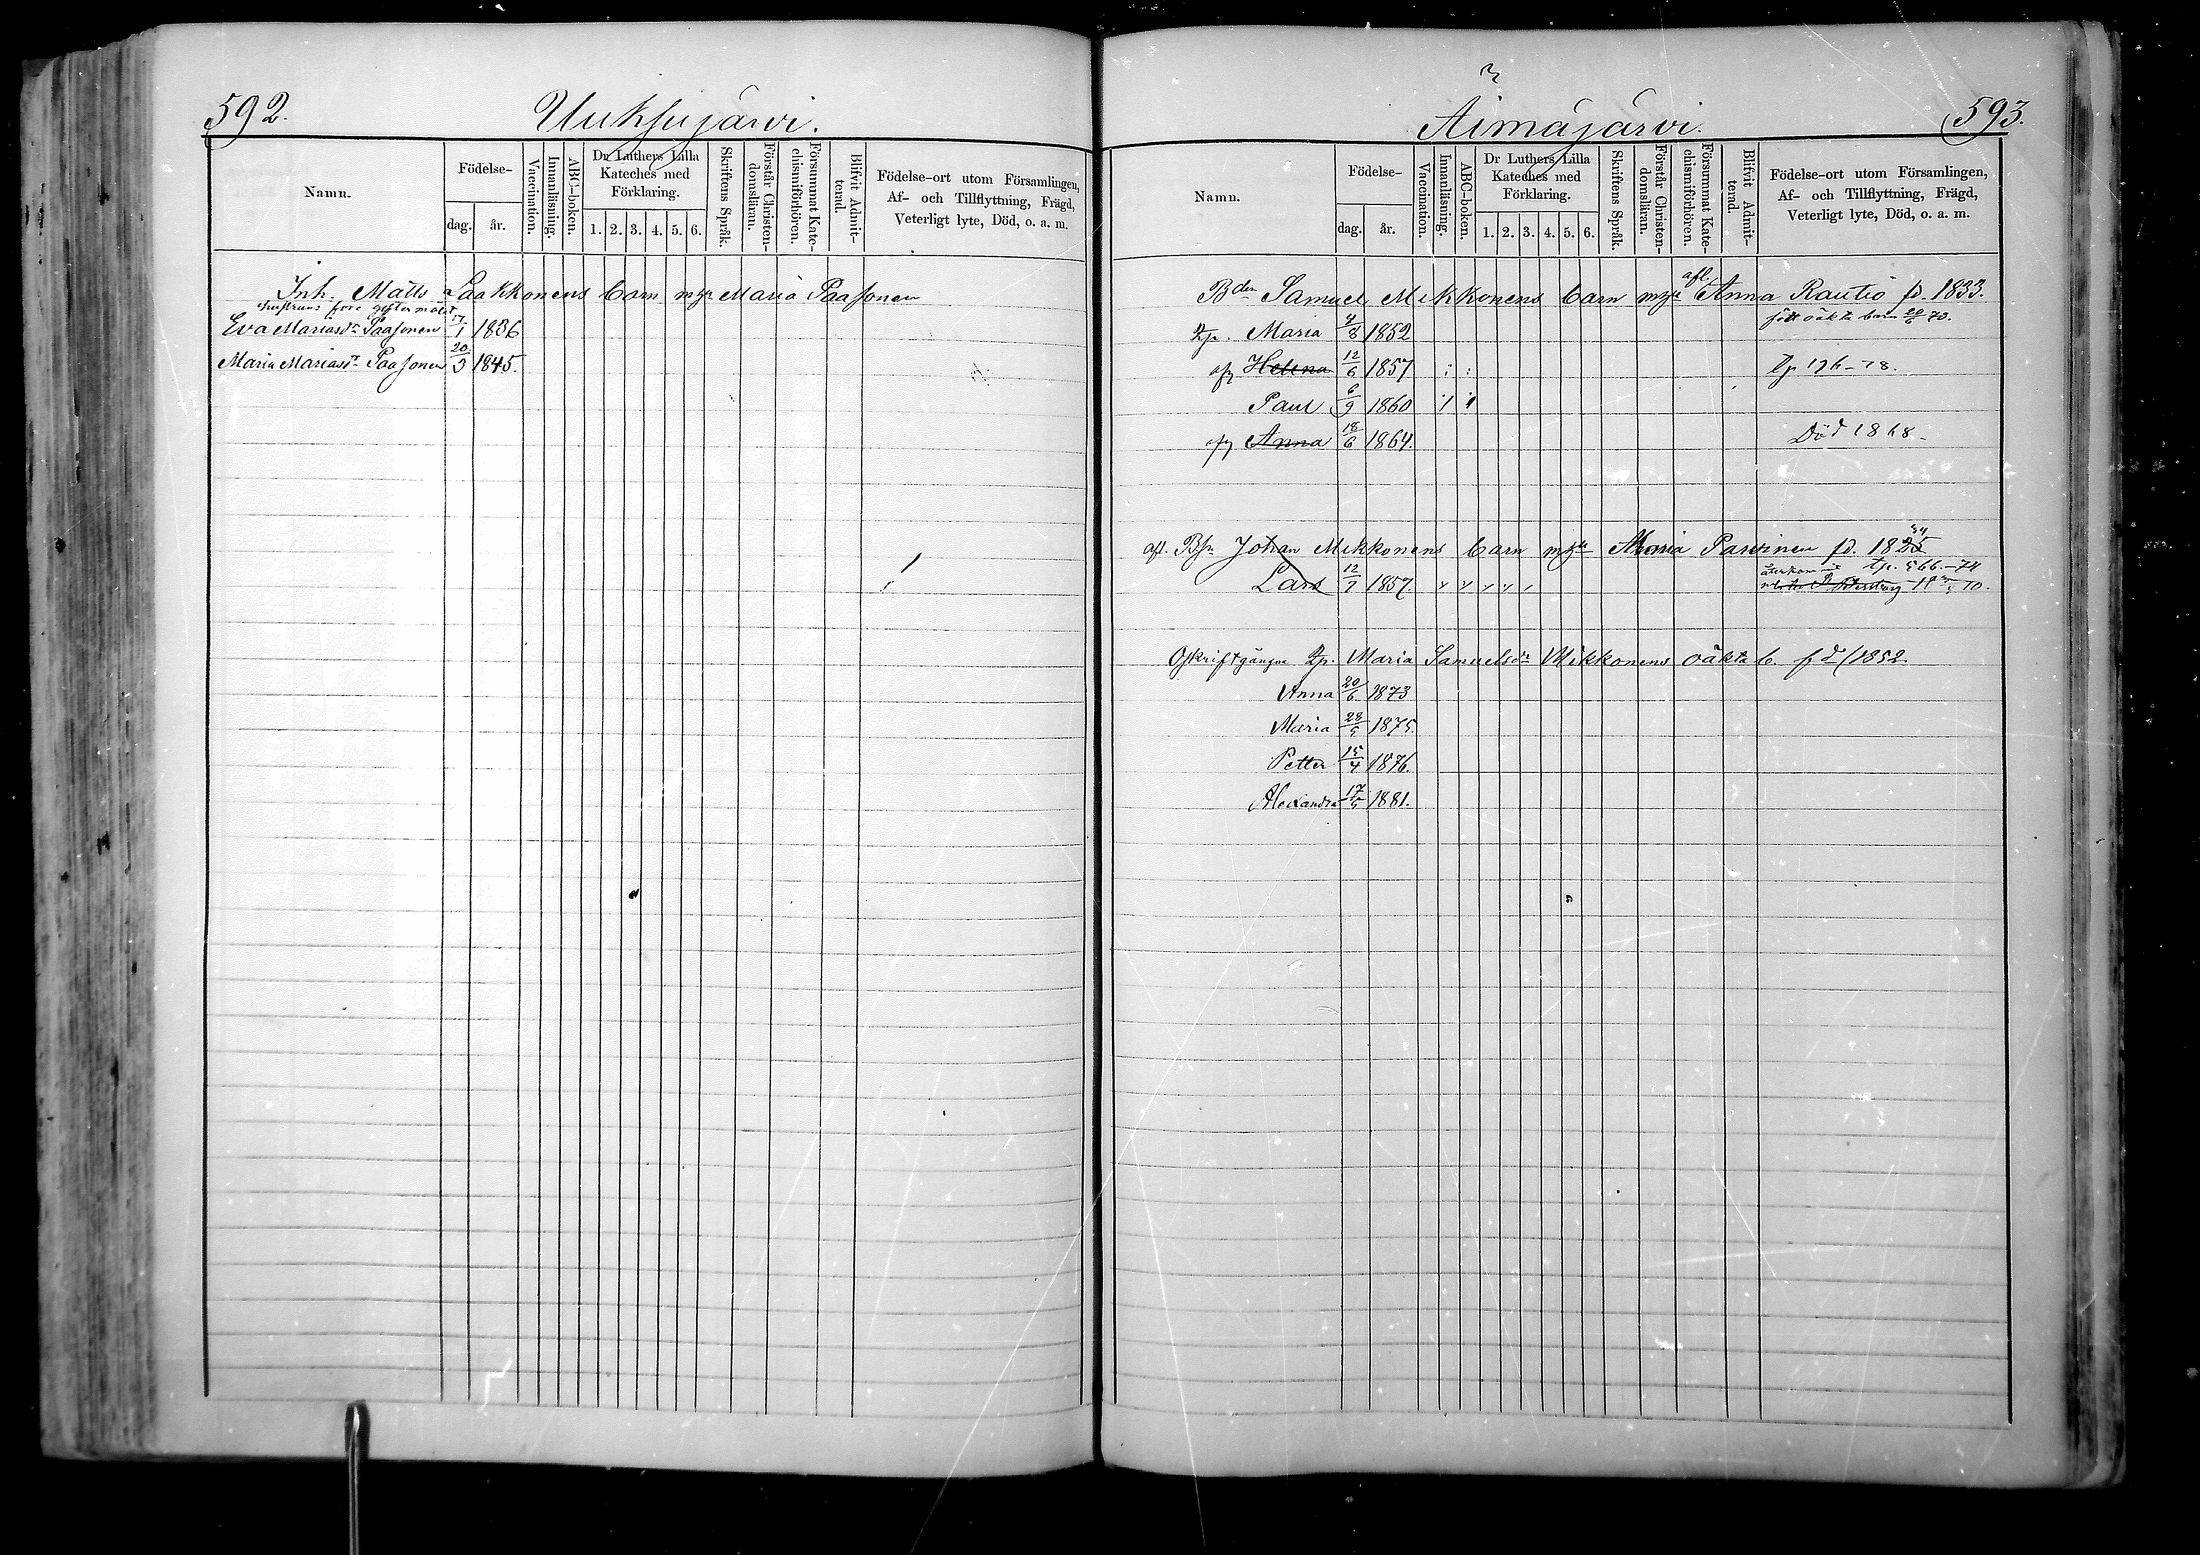 592.
Uuksujärvi.
Namn.
Födelse-
dag. år.
Vaccination.
Innanläsning.
ABC-boken.
Dr Luthers Lilla
Kateches med
Förklaring.
1. 2. 3. 4. 5. 6.
Skriftens Språk.
Förstår Christen-
domsläran.
Försummat Kate-
chismiförhören.
Blifvit Admit-
terad.
Födelse-ort utom Församlingen,
Af- och Tillflyttning, Frägd,
Veterligt lyte, Död, o. a. m.
Inh. Matts Laakkonens barn m Maria Paasonen
hustruns före giftermålet
Eva Mariasdr Paasonen 17/1 1836
Maria Mariasdr Paasonen 20/3 1845.
593.
Äimäjärvi.
Namn.
Födelse-
dag. år.
Vaccination.
Innanläsning.
ABC-boken.
Dr Luthers Lilla
Kateches med
Förklaring.
1. 2. 3. 4. 5. 6.
Skriftens Språk.
Förstår Christen-
domsläran.
Försummat Kate-
chismiförhören.
Blifvit Admit-
terad.
Födelse-ort utom Församlingen,
Af- och Tillflyttning, Frägd,
Veterligt lyte, Död, o. a. m.
Bden Samuel Mikkonens barn afl. Anna Rautio fd. 1833.
fött oäkta barn 20/6 73.
Maria 4/8 1852
Helena 12/6 1857
Paul 6/9 1860
Anna 18/6 1864. Död 1868.
afl. Johan Mikkonens barn Maria fd. 1825 34
Lars 12/7 1857. återkom tp. 566.-74
Oskriftgångna Maria Samuelsdr Mikkonens oäkta b. fd (1852.
Anna 20/6 1873
Maria 28/5 1875.
Petter 15/4 1876.
Alexandra 17/5 1881.